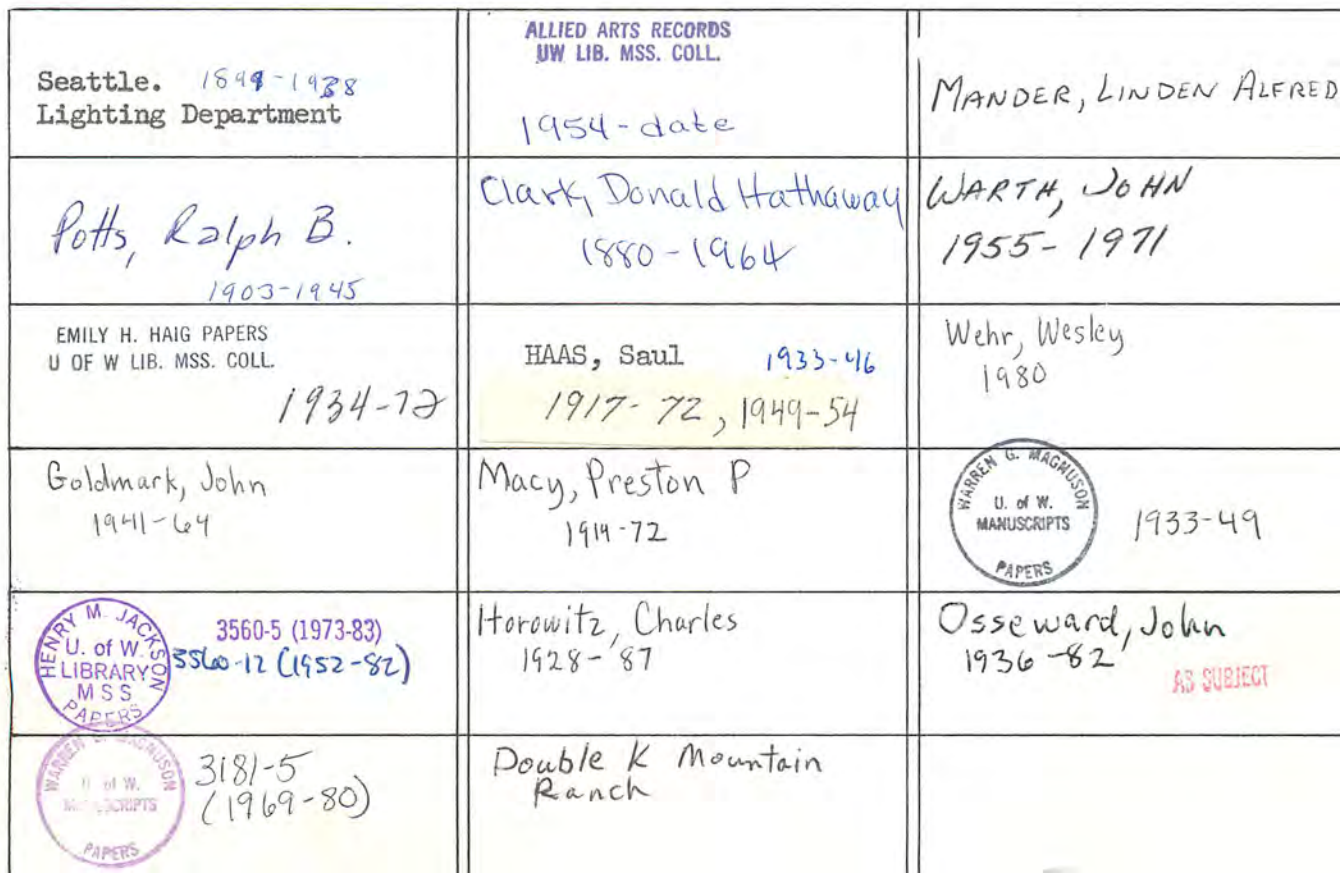 Seattle. 1899-1938
Lighting Department
ALLIED ARTS RECORDS
UW LIB. MSS. COLL.
1954-date
MANDER, LINDEN ALFRED
Potts, Ralph B.
1903-1945
Clark, Donald Hathaway
1880-1964
WARTH, JOHN
1955-1971
EMILY H. HAIG PAPERS
U OF W LIB. MSS. COLL.
1934-72
HAAS, Saul 1933-46
1917-72, 1949-54
Wehr, Wesley
1980
Goldmark, John
1941-64
Macy, Preston P
1914-72
WARREN G. MAGNUSON
U. of W.
MANUSCRIPTS
PAPERS
1933-49
HENRY M. JACKSON
U. of W.
LIBRARY
MSS
PAPERS
3560-5 (1973-83)
3560-12 (1952-82)
Horowitz, Charles
1928-'87
Osseward, John
1936-82
AS SUBJECT
WARREN G. MAGNUSON
U. of W.
MANUSCRIPTS
PAPERS
3181-5
(1969-80)
Double K Mountain
Ranch